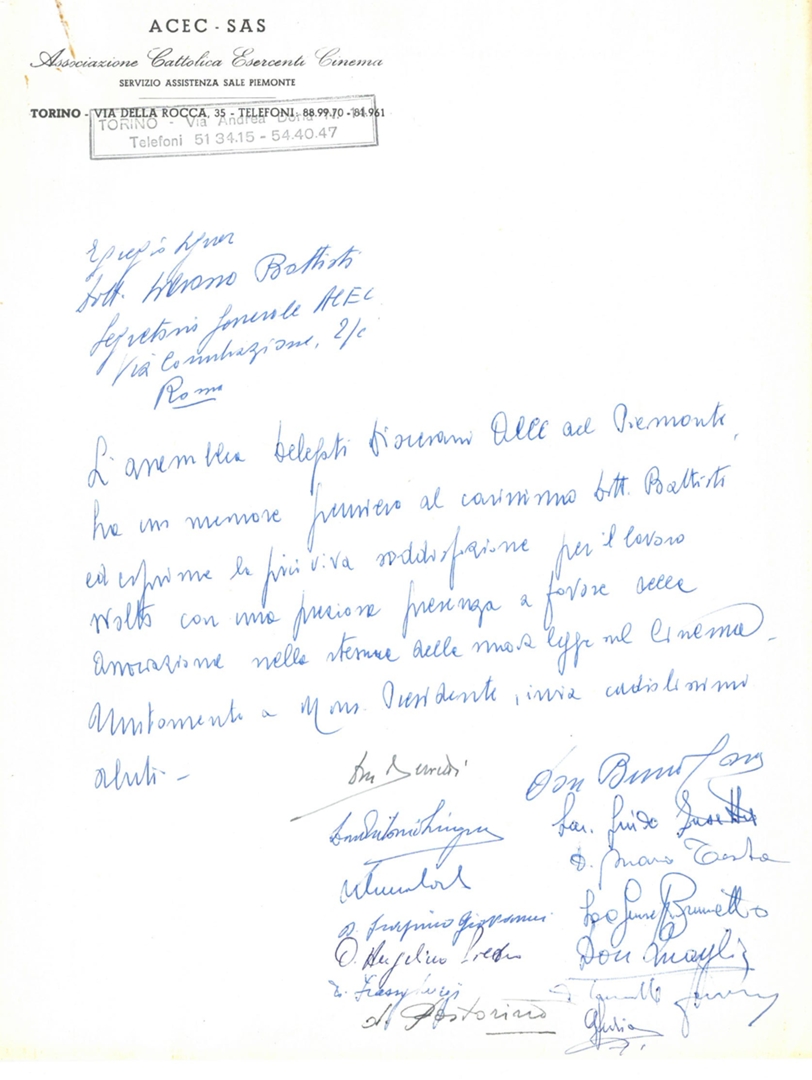 ACEC - SAS
Associazione Cattolica Esercenti Cinema
SERVIZIO ASSISTENZA SALE PIEMONTE
TORINO - VIA DELLA ROCCA, 35 - TELEFONI: 88.99.70 - 81.961
TORINO - Via Andrea Doria
Telefoni 51 34.15 - 54.40.47
Egregio Signor
Dott. Battisti
Segretario Generale ACEC
Via Conciliazione, 2/c
Roma
L'assemblea Delegati Diocesani ACEC del Piemonte,
ha un memore pensiero al carissimo Dott. Battisti
ed esprime la più viva soddisfazione per il lavoro
svolto con una preziosa presenza a favore della
Associazione nella stesura della nuova legge sul Cinema.
Unitamente a Mons. Presidente, invia cordialissimi
saluti -
Don
Don Bruno
Don Antonio
Sac. Guido
D. Mario Testa
D. Giovanni
Brunetto
D. Angelino
Don
D. Pastorino